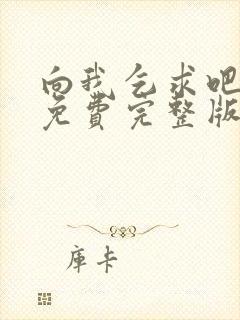 向我乞求吧
免費完整版
庫卡